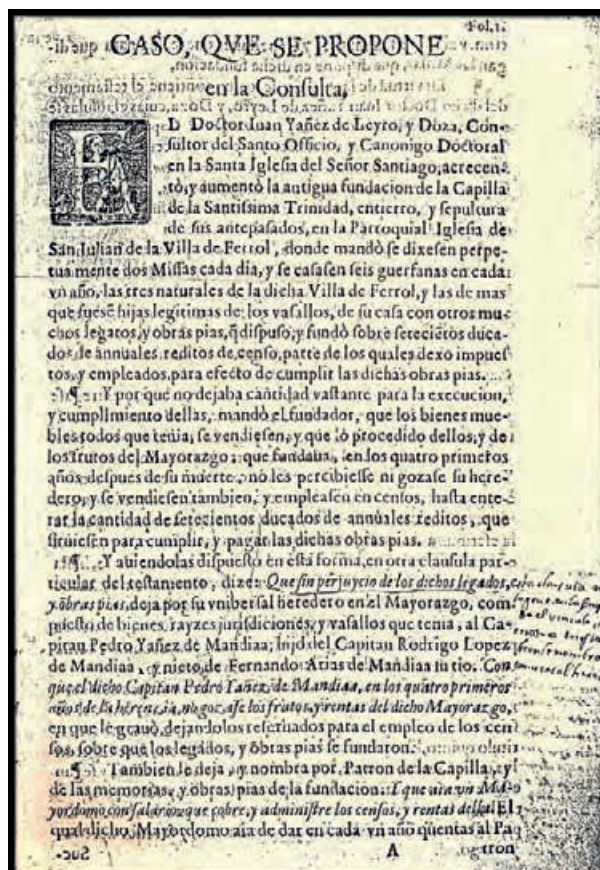 Fol.1.
CASO, QVE SE PROPONE
en la Consulta,
EL Doctor Iuan Yañez de Leyro, y Doza, Con-
sultor del Santo Officio, y Canonigo Doctoral
en la Santa Iglesia del Señor Santiago, acrecen-
tò, y aumentò la antigua fundacion de la Capilla
de la Santissima Trinidad, entierro, y sepultura
de sus antepasados, en la Parroquial Iglesia de
San Iulian de la Villa de Ferrol, donde mandò se dixesen perpe-
tuamente dos Missas cada dia, y se casasen seis guerfanas en cada
vn año, las tres naturales de la dicha Villa de Ferrol, y las de mas
que fuesē hijas legitimas de los vasallos, de su casa con otros mu-
chos legatos, y obras pias, q̃ dispuso, y fundò sobre setecietos duca-
dos de annuales reditos de censo, parte de los quales dexo impues-
tos, y empleados, para efecto de cumplir las dichas obras pias.
¶ Y por que no dejaba cātidad vastante para la execucion,
y cumplimiento dellas, mandò el fundador, que los bienes mue-
bles todos que tenia, se vendiesen, y que lo procedido dellos, y de
los frutos del Mayorazgo, que fundaua, en los quatro primeros
años despues de su muerte, no les percibiesse ni gozase su here-
dero, y se vendiesen tambien, y empleasen en censos, hasta ente-
rar la cantidad de setecientos ducados de annuales reditos, que
siruiesen para cumplir, y pagar las dichas obras pias.
¶ Y auiendolas dispuesto en esta forma, en otra clausula par-
ticular del testamento, dize: Que sin perjuycio de los dichos legados,
y obras pias, deja por su vnibersal heredero en el Mayorazgo, com-
puesto de bienes, rayzes jurisdiciones, y vasallos que tenia, al Ca-
pitan Pedro Yañez de Mandiaa, hijo del Capitan Rodrigo Lopez
de Mandiaa, y nieto de Fernando Arias de Mandiaa su tio. Con
que el dicho Capitan Pedro Yañez de Mandiaa, en los quatro primeros
años de la herencia, no gozase los frutos, y rentas del dicho Mayorazgo,
en que le grauò, dejandolos reseruados para el empleo de los cen-
sos, sobre que los legados, y obras pias se fundaron.
¶ Tambien le deja, y nombra por Patron de la Capilla, y
de las memorias, y obras pias de la fundacion: Y que aia vn Ma-
yordomo con salario que cobre, y administre los censos, y rentas della: El
qual dicho Mayordomo aia de dar en cada vn año quentas al Pa
A
tron